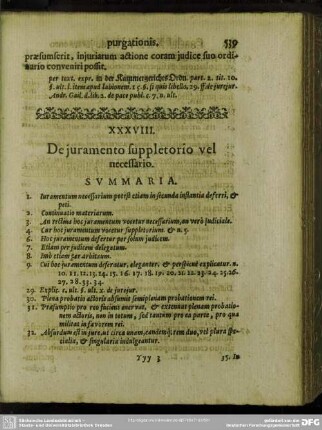 purgationis. 539
præsumserit, injuriarum actione coram judice suo ordi-
nario conveniri possit.
per text. expr. in der Kammergerichts Ordn. part. 2. tit. 10.
§. ult. l. item apud labionem. 15 §. si quis libello. 29. ff. de injur.
Andr. Gail. d. lib. 2. de pace publ. c. 7. n. ult.
XXXVIII.
De juramento suppletorio vel
necessario.
SVMMARIA.
1. Iuramentum necessarium potest etiam in secunda instantia deferri, &
peti.
2. Continuatio materiarum.
3. An rectius hoc juramentum vocetur necessarium, an verò judiciale.
4. Cur hoc juramentum vocetur suppletorium. & n. 5.
6. Hoc juramentum defertur per solum judicem.
7. Etiam per judicem delegatum.
8. Imò etiam per arbitrum.
9. Cui hoc juramentum deferatur, eleganter. & perspicuè explicatur. n.
10. 11. 12. 13. 14. 15. 16. 17. 18. 19. 20. 21. 22. 23. 24. 25. 26.
27. 28. 33. 34.
29. Explic. c. ult. §. ult. x. de jurejur.
30. Plena probatio actoris absumit semiplenam probationem rei.
31. Præsumptio pro reo faciens enervat, & extenuat plenam probatio-
nem actoris, non in totum, sed tantùm pro ea parte, pro qua
militat in favorem rei.
32. Absurdum est in jure, ut circa unam, eandemq; rem duo, vel plura spe-
cialia, & singularia indulgeantur.
Yyy 3 35. In